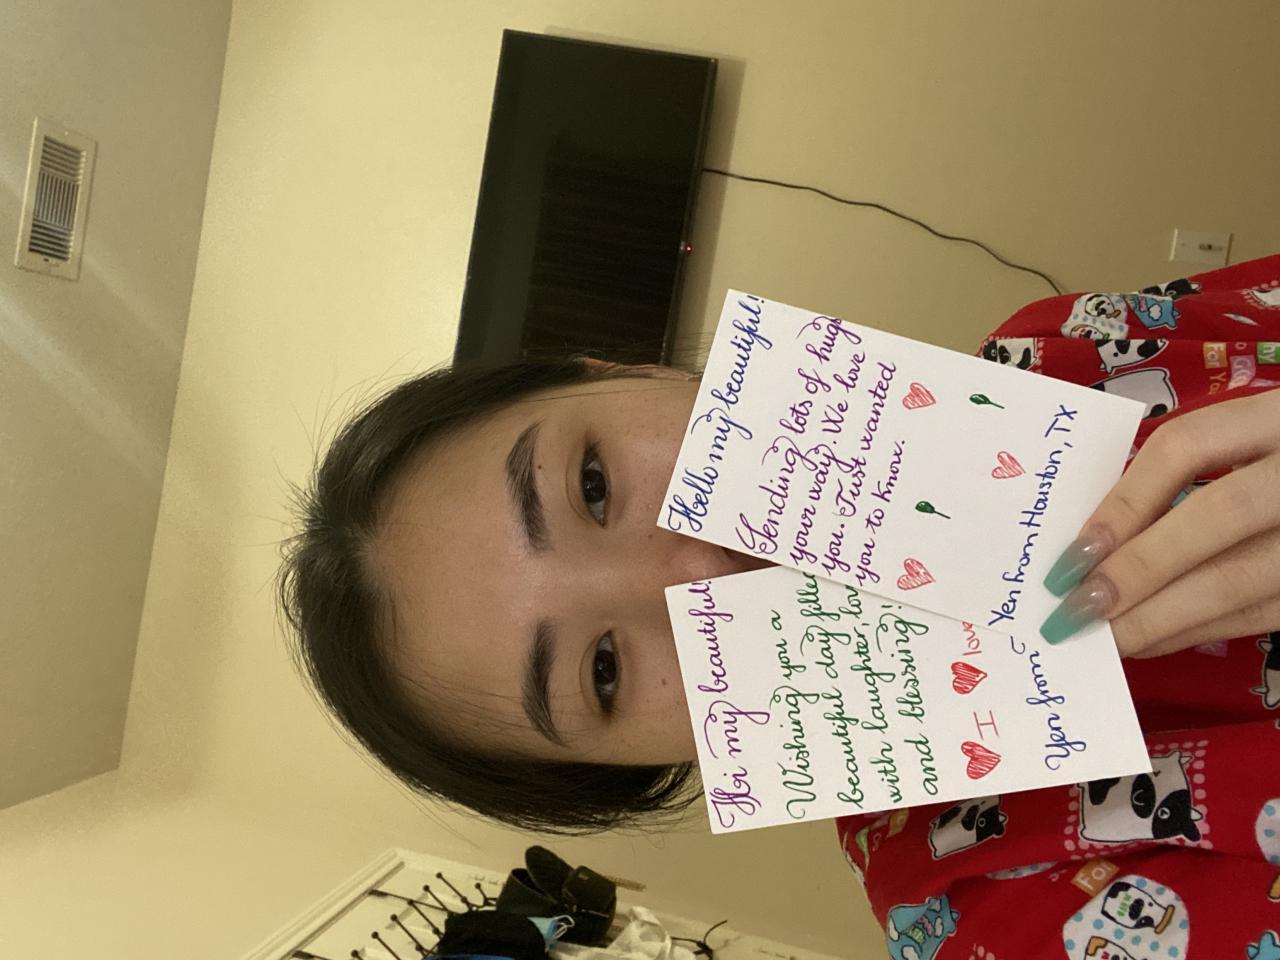 Hello my beautiful!
Sending lots of hugs
your way. We love
you. Just wanted
you to know.
Yen from Houston, TX
Hi my beautiful!
Wishing you a
beautiful day filled
with laughter, love
and blessing!
I love
Yen from
For You
For